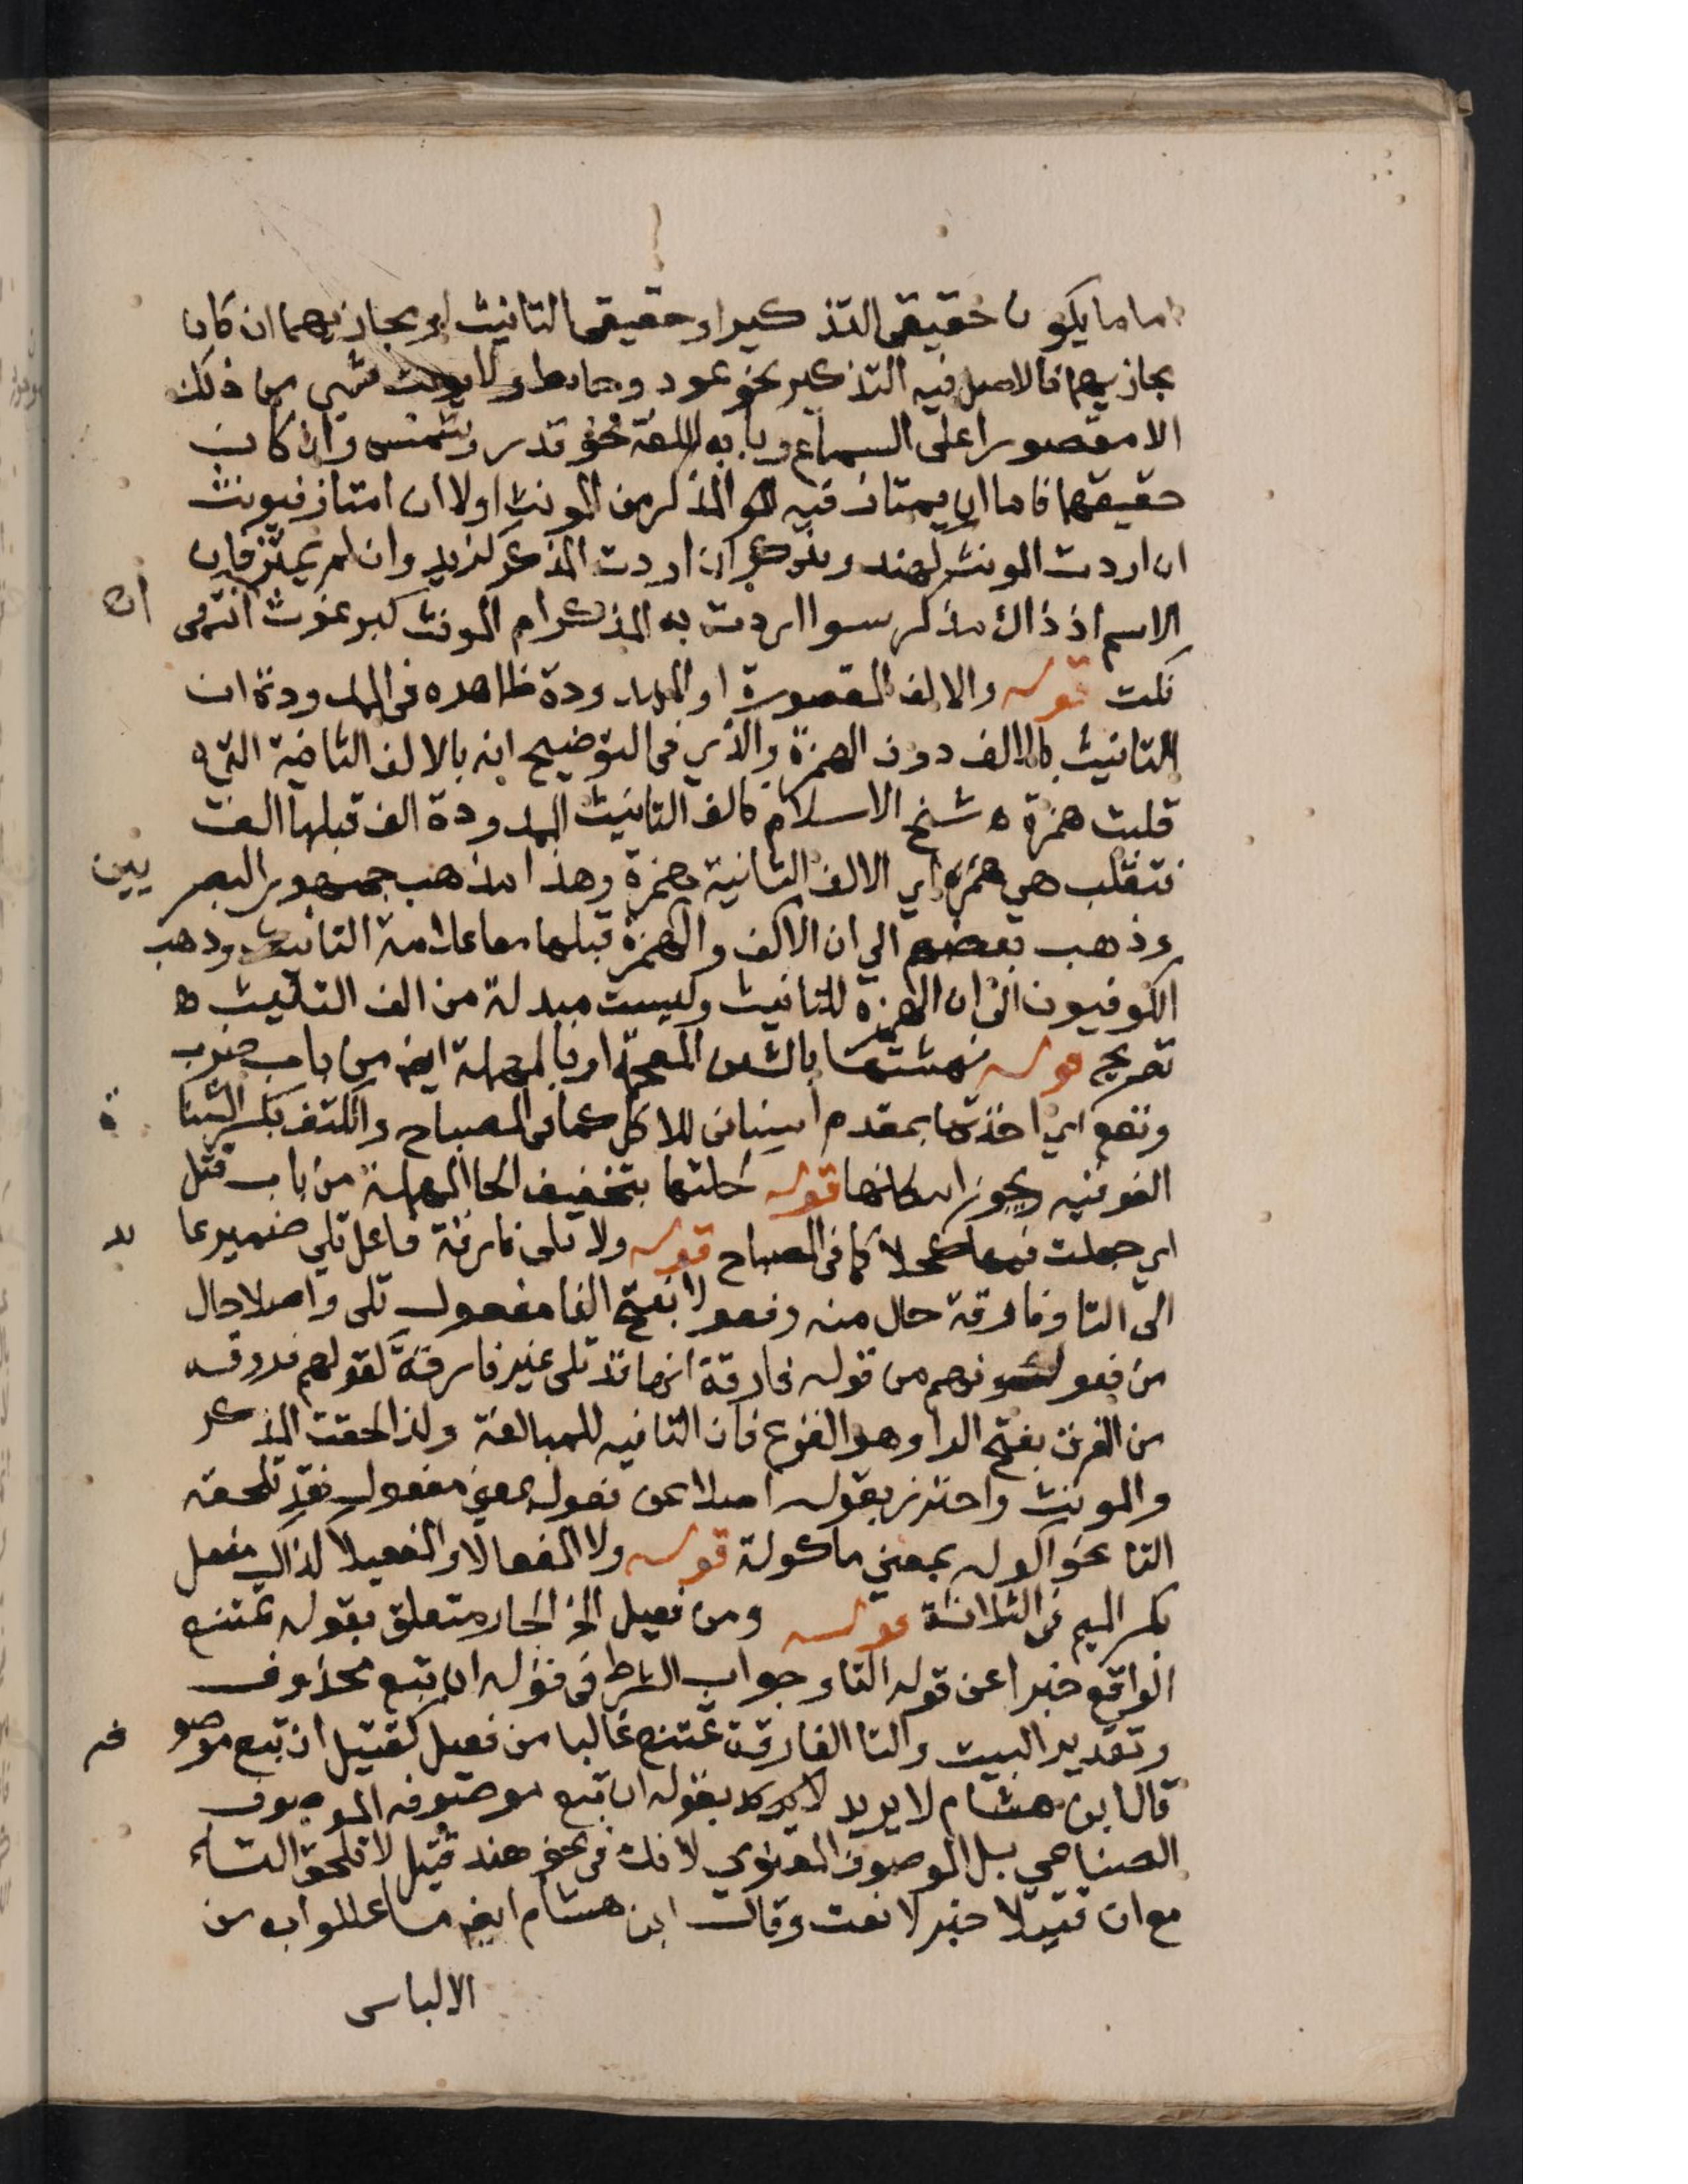 اما ما يكون حقيقي التذكير او حقيقي التانيث او مجازيهما ان كان
مجازيهما فالاصل فيه التذكير نحو عود وحايط ولا يونث شي من ذلك
الا مقصورا على السماع وبابه اللغة نحو قدر وشمس وان كان
حقيقهما فاما ان يمتاز فيه المذكر من المونث اولا ان امتاز فيونث
ان اردت المونث كهند ويذكر ان اردت المذكر كزيد وان لم يميز فان
الاسم اذ ذاك مذكر سوا اردت به المذكر ام المونث كبرغوث انتهى
نكت قوله والالف المقصورة او الممدودة ظاهره في الممدودة ان ان
التانيث بالالف دون الهمزة والذي في التوضيح انه بالالف الثانية التي
قلبت همزة ه شيخ الاسلام كالف التانيث الممدودة الف قبلها الف
فتقلب هي همزة اي الالف الثانية همزة وهذا مذهب جمهور البصر يين
وذهب بعضهم الي ان الالف والهمزة قبلها معا علامة التانيث وذهب
الكوفيون الى ان الهمزة للتانيث وليست مبدلة من الف التانيث ه
تصريح قوله نهشتها بالشين المعجمة او بالمهملة ايض من باب ضرب
ونفع اي اخذتها بمقدم اسناني للاكل كما في المصباح والكتف بكسر التا
الفوقيه ويجوز اسكانها قوله كحلتها بتخفيف الحا المهملة من باب قتل
اي جعلت فيها كحلا كما في المصباح قوله ولا تلى فارقة فاعل تلي ضمير عا يد
الى التا وفارقة حال منه وفعولا بفتح الفا مفعول تلى واصلا حال
من فعولا وفهم من قوله فارقة انها قد تلى غير فارقة كقولهم فروقه
من الفرق بفتح الرا وهو الفزع فان التا فيه للمبالغة ولذا لحقت المذكر
والمونث واحترز بقوله اصلا عن فعول بمعني مفعول فقد تلحقه
التا نحو اكوله بمعني ماكولة قوله ولا المفعال والمفعيلا كذاك مفعل
بكسر الميم في الثلاثة قوله ومن فعيل الخ الجار متعلق بقوله تمتنع
الواقع خبرا عن قوله التا وجواب الشرط في قوله ان تبع محذوف
وتقدير البيت والتا الفارقة تمتنع غالبا من فعيل كقتيل ان تبع موصو فه
قال ابن هشام لا يريد بقوله ان تبع موصوفه الموصوف
الصناعي بل الموصوف المعنوي لانك في نحو هند قتيل لا تلحق التاء
مع ان قتيلا خبر لا نعت وقال ابن هشام ايض ما عللوا به من
الالباس